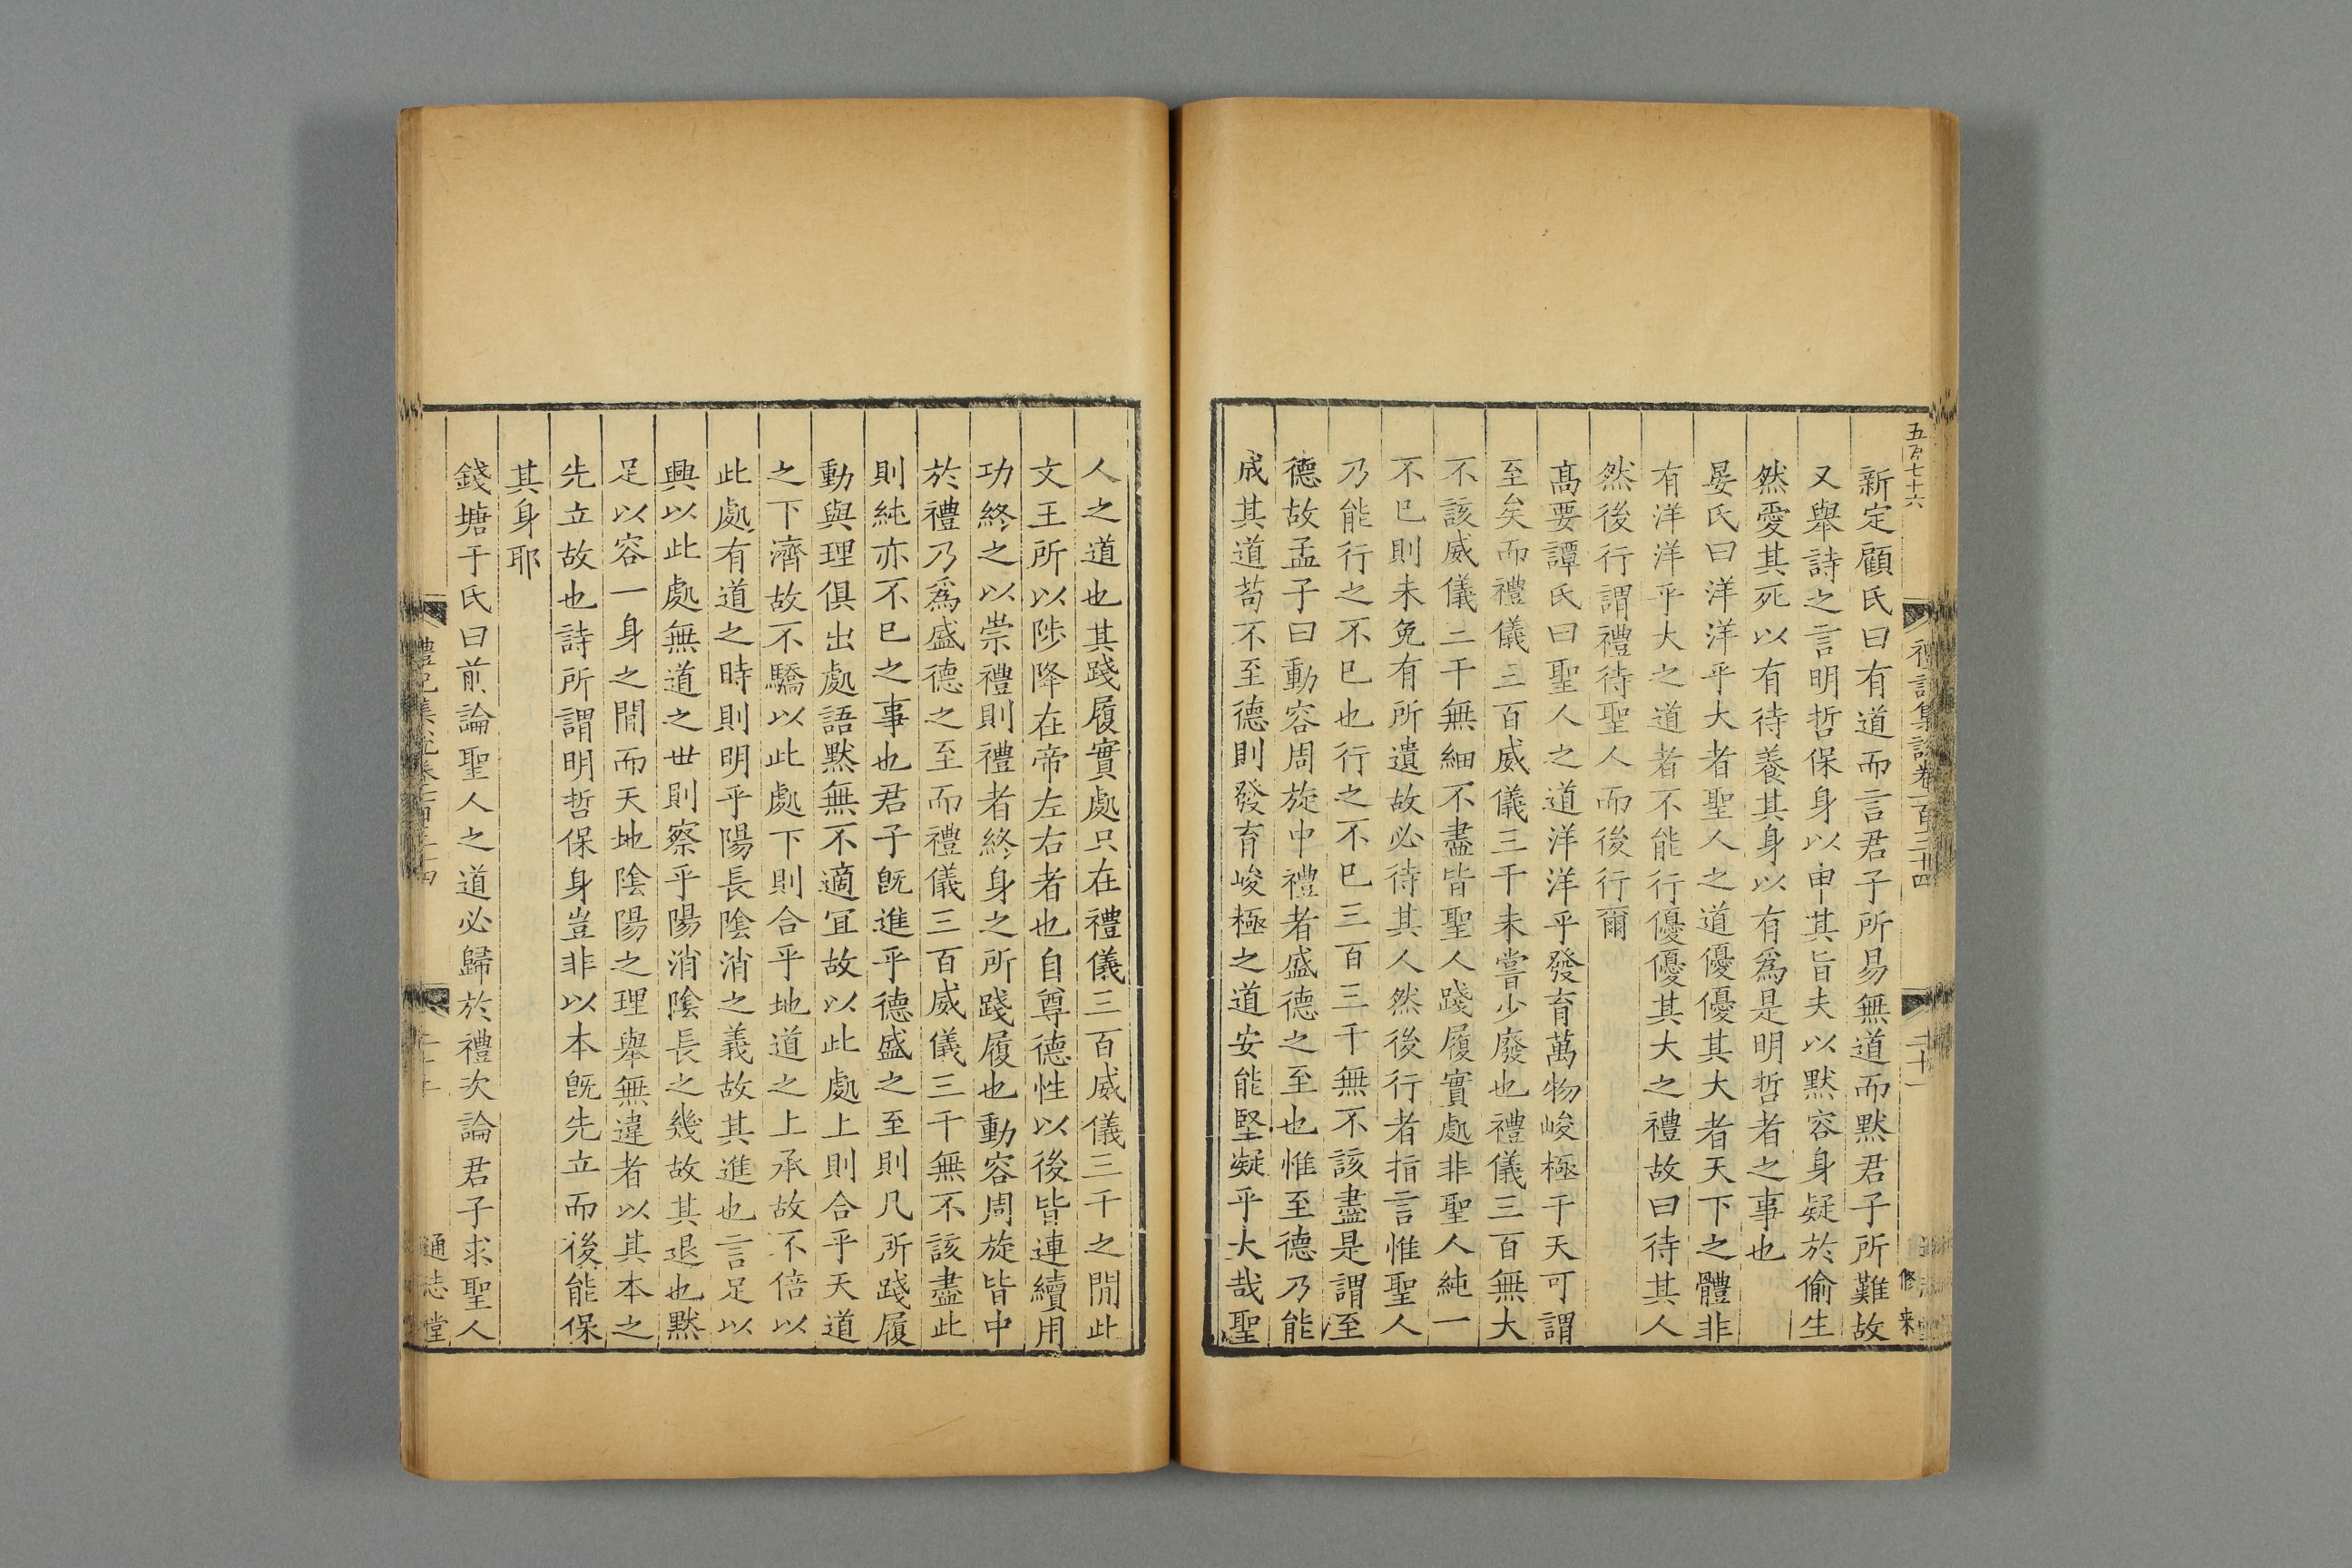 五百七十六
禮記集說卷一百三十四
二十一
修
来
新定顧氏曰有道而言君子所易無道而默君子所難故
又舉詩之言明哲保身以申其旨夫以默容身疑於偷生
然愛其死以有待養其身以有爲是明哲者之事也
晏氏曰洋洋乎大者聖人之道優優其大者天下之體非
有洋洋乎大之道者不能行優優其大之禮故曰待其人
然後行謂禮待聖人而後行爾
髙要譚氏曰聖人之道洋洋乎發育萬物峻極于天可謂
至矣而禮儀三百威儀三千未嘗少廢也禮儀三百無大
不該威儀三千無細不盡皆聖人踐履實處非聖人純一
不已則未免有所遺故必待其人然後行者指言惟聖人
乃能行之不已也行之不已三百三千無不該盡是謂至
德故孟子曰動容周旋中禮者盛德之至也惟至德乃能
成其道苟不至德則發育峻極之道安能堅凝乎大哉聖
人之道也其踐履實處只在禮儀三百威儀三千之閒此
文王所以陟降在帝左右者也自尊德性以後皆連續用
功終之以崇禮則禮者終身之所踐履也動容周旋皆中
於禮乃爲盛德之至而禮儀三百威儀三千無不該盡此
則純亦不已之事也君子旣進乎德盛之至則凡所踐履
動與理俱出處語默無不適宜故以此處上則合乎天道
之下濟故不驕以此處下則合乎地道之上承故不倍以
此處有道之時則明乎陽長陰消之義故其進也言足以
興以此處無道之世則察乎陽消陰長之幾故其退也默
足以容一身之閒而天地陰陽之理舉無違者以其本之
先立故也詩所謂明哲保身豈非以本旣先立而後能保
其身耶
錢塘于氏曰前論聖人之道必歸於禮次論君子求聖人
通志堂